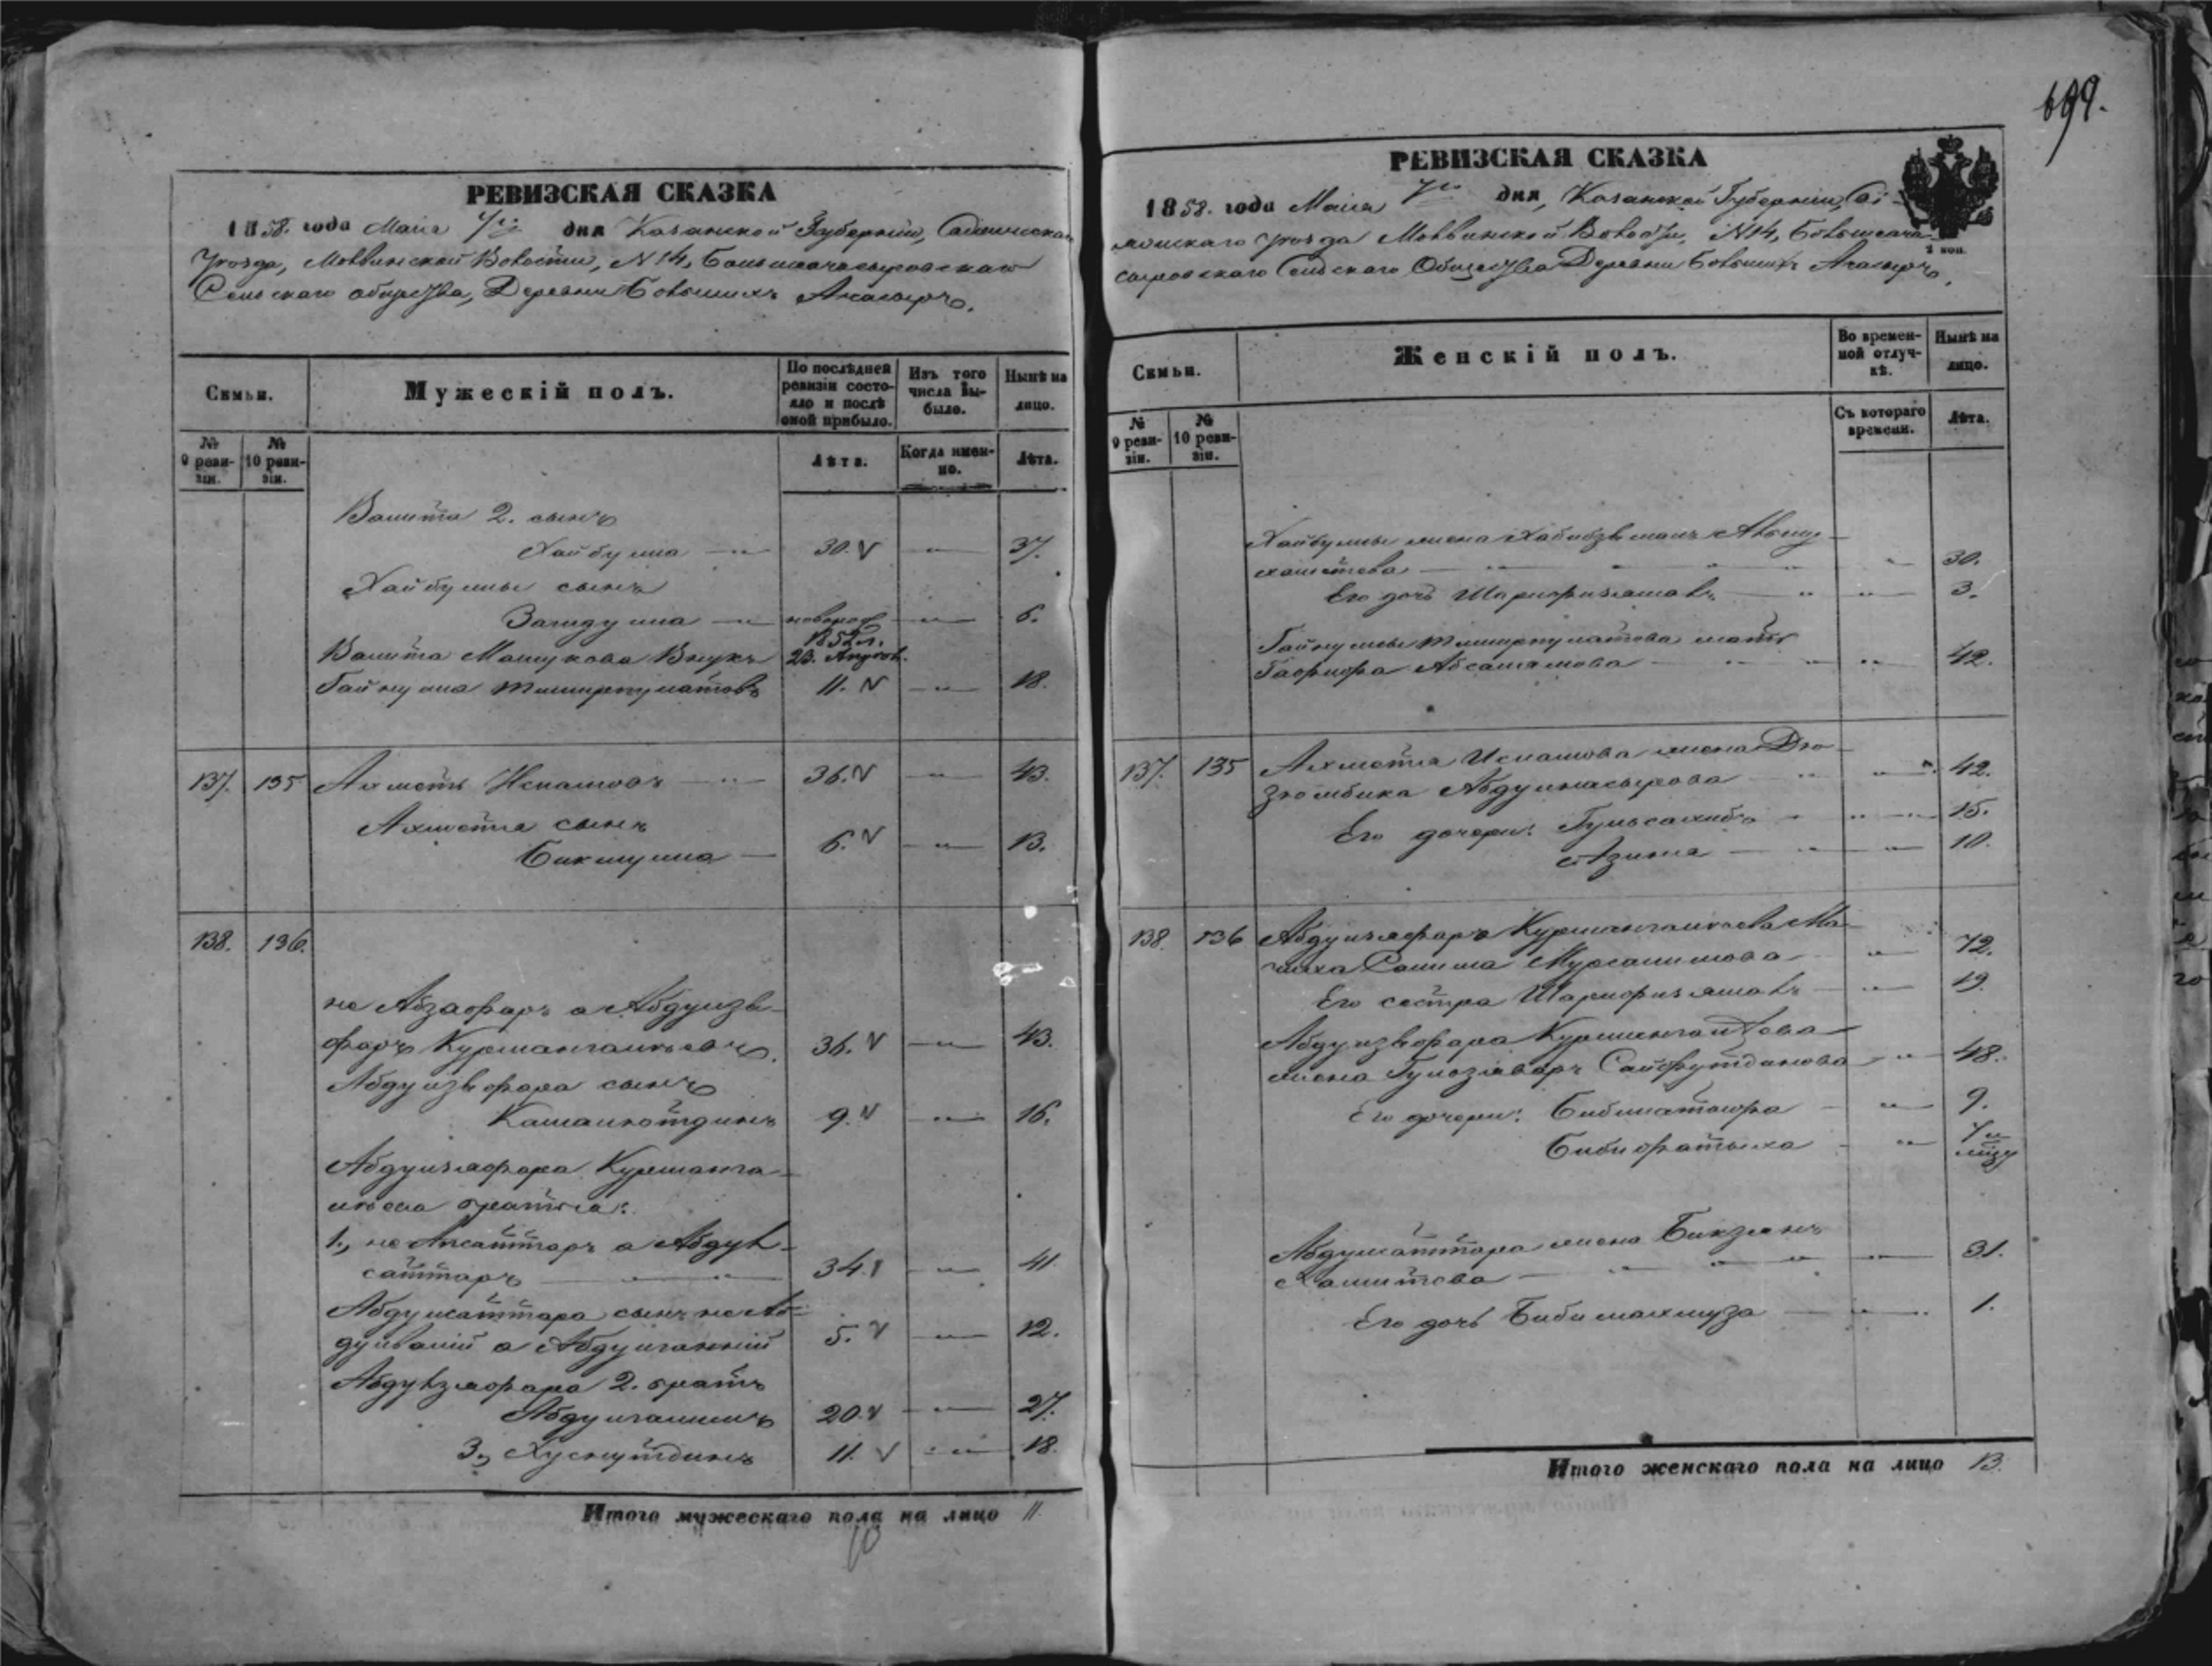 699.
РЕВИЗСКАЯ СКАЗКА
1858. года Маія 7го дня Казанской Губерніи,
Уѣзда, Моллвинской Волости, N14, Большеачасыровскаго
Сельскаго общества, Деревни Большихъ Ачасыръ.
Семьи.
Мужескій полъ.
По послѣдней ревизіи состояло и послѣ оной прибыло.
Изъ того числа выбыло.
Нынѣ на лицо.
№ 9 ревизіи.
№ 10 ревизіи.
Лѣта.
Когда именно.
Лѣта.
Валита 2. сынъ
Хайбулла — 30. — 37.
Хайбуллы сынъ
Загидулла — новорож — 6.
1852 г.
Валита Внукъ 23.
Гайнулла Тимирпулатовъ 11. — 18.
137. 135 Ахметь Исмаиловъ — 36. — 43.
Ахметя сынъ
Бикмулла — 6. — 13.
138. 136.
не Абзафаръ а Абдулзя-
фаръ Курмангалѣевъ. 36. — 43.
Абдулзяфара сынъ
Камалютдинъ 9. — 16.
Абдулзяфара Курманга-
лѣева братья:
1., не Апсаттаръ а Абдул-
саттаръ — 34. — 41
Абдулсаттара сынъ не Аб-
дулвалій а Абдулганній 5. — 12.
Абдулзяфара 2. братъ
Абдулгалимъ 20. — 27.
3., Хуснутдинъ 11. — 18.
Итого мужескаго пола на лицо 11.
10
РЕВИЗСКАЯ СКАЗКА
1858. года Маія 7го дня, Казанской Губерніи,
Уѣзда Моллвинской Волости, N14, Большеача-
сыровскаго Сельскаго Общества Деревни Большихъ Ачасыръ,
2 коп.
Семьи.
Женскій полъ.
Во временной отлучкѣ.
Нынѣ на лицо.
№ 9 ревизіи.
№ 10 ревизіи.
Съ котораго времени.
Лѣта.
Хайбуллы жена Хабибзямалъ
— 30.
Его дочь Шарифизямалъ — 3.
Гайнуллы Тимирпулатова мать
Гафифа Абсалямова — 42.
137. 135 Ахметя Исмаилова жена Дю-
зюмбика Абдулнасырова — 42.
Его дочери: Гульсахибъ — 15.
Азина — 10.
138. 136 Абдулзяфара Курмангалѣева Ма-
чиха Салима Мурсалимова — 72.
Его сестра Шарифизямалъ — 19.
Абдулзяфара Курмангалѣева
жена Гульзяваръ Сайфутдинова — 48.
Его дочери: Бибилатыфа — 9.
Бибифатыха — 7 м
Абдулсаттара жена Бикзянъ
Халитова — 31.
Его дочь Бибимахмуза — 1.
Итого женскаго пола на лицо 13.